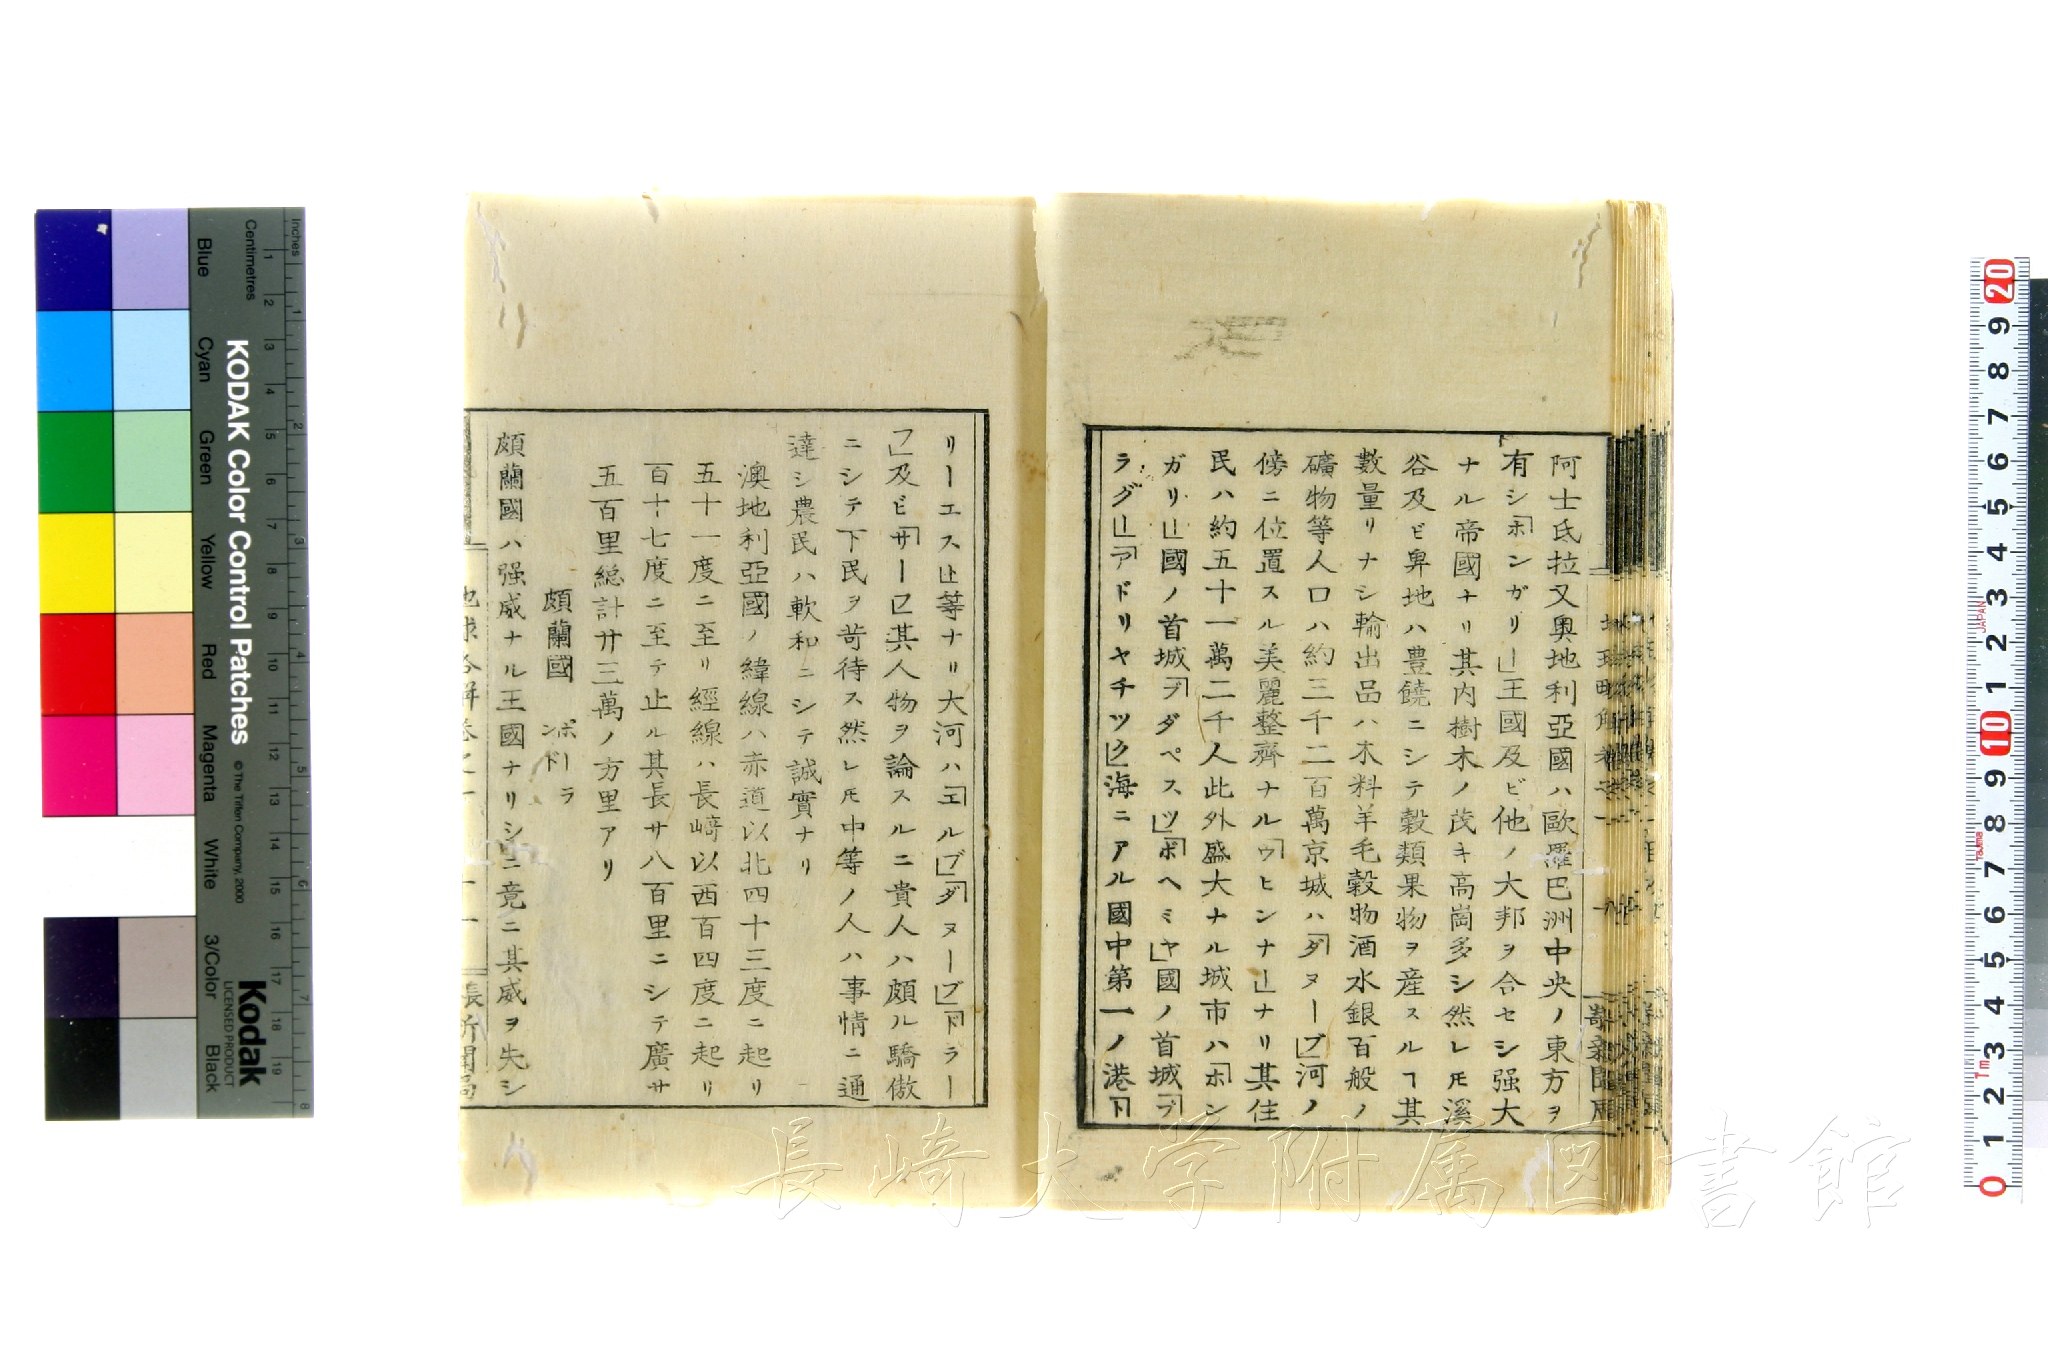 阿士氏拉又奥地利亞國ハ歐羅巴洲中央ノ東方ヲ
有シ「ホンガリー」王國及ビ他ノ大邦ヲ合セシ强大
ナル帝國ナリ其内樹木ノ茂キ高崗多シ然レ𪜈溪
谷及ビ卑地ハ豊饒ニシテ穀類果物ヲ産スルヿ其
數量リナシ輸出品ハ木料羊毛穀物酒水銀百般ノ
礦物等人口ハ約三千二百萬京城ハ「ダヌーブ」河ノ
傍ニ位置スル美麗整齊ナル「ウヒンナー」ナリ其住
民ハ約五十一萬二千人此外盛大ナル城市ハ「ホン
ガリー」國ノ首城「ブダペスツ」「ボヘミヤ」國ノ首城「プ
ラグー」「アドリヤチツク」海ニアル國中第一ノ港「ト
リーエスト」等ナリ大河ハ「エルブ」「ダヌーブ」「ドラー
フ」及ビ「サーフ」其人物ヲ論スルニ貴人ハ頗ル驕傲
ニシテ下民ヲ苛待ス然レ𪜈中等ノ人ハ事情ニ通
達シ農民ハ軟和ニシテ誠實ナリ
澳地利亞國ノ緯線ハ赤道以北四十三度ニ起リ
五十一度ニ至リ經線ハ長﨑以西百四度ニ起リ
百十七度ニ至テ止ル其長サ八百里ニシテ廣サ
五百里総計廿三萬ノ方里アリ
頗蘭國 ポーランド
頗蘭國ハ强威ナル王國ナリシニ竟ニ其威ヲ失シ
KODAK Color Control Patches
© The Tiffen Company, 2000
Kodak
LICENSED PRODUCT
Inches
Centimetres
Blue
Cyan
Green
Yellow
Red
Magenta
White
3/Color
Black
長崎大学附属図書館